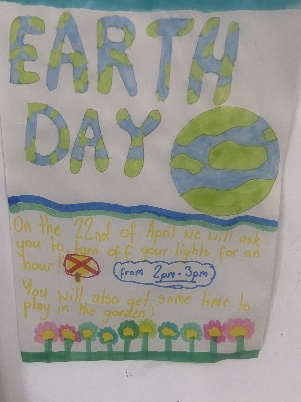 EARTH
DAY
On the 22nd of April we will ask
you to turn off your lights for an
hour!
from 2pm - 3pm
You will also get some time to
play in the garden!